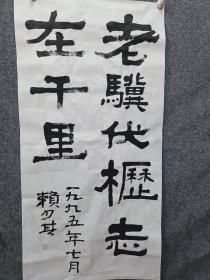 老驥伏櫪志
在千里
一九九五年七月
賴少其